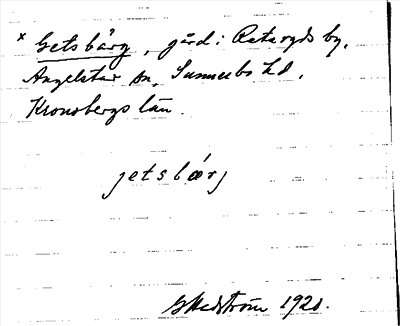 × Getsbärg, gård i Rataryds by,
Angelstad sn, Sunnerbo hd,
Kronobergs län.
jetsbærj
GHedström 1921.